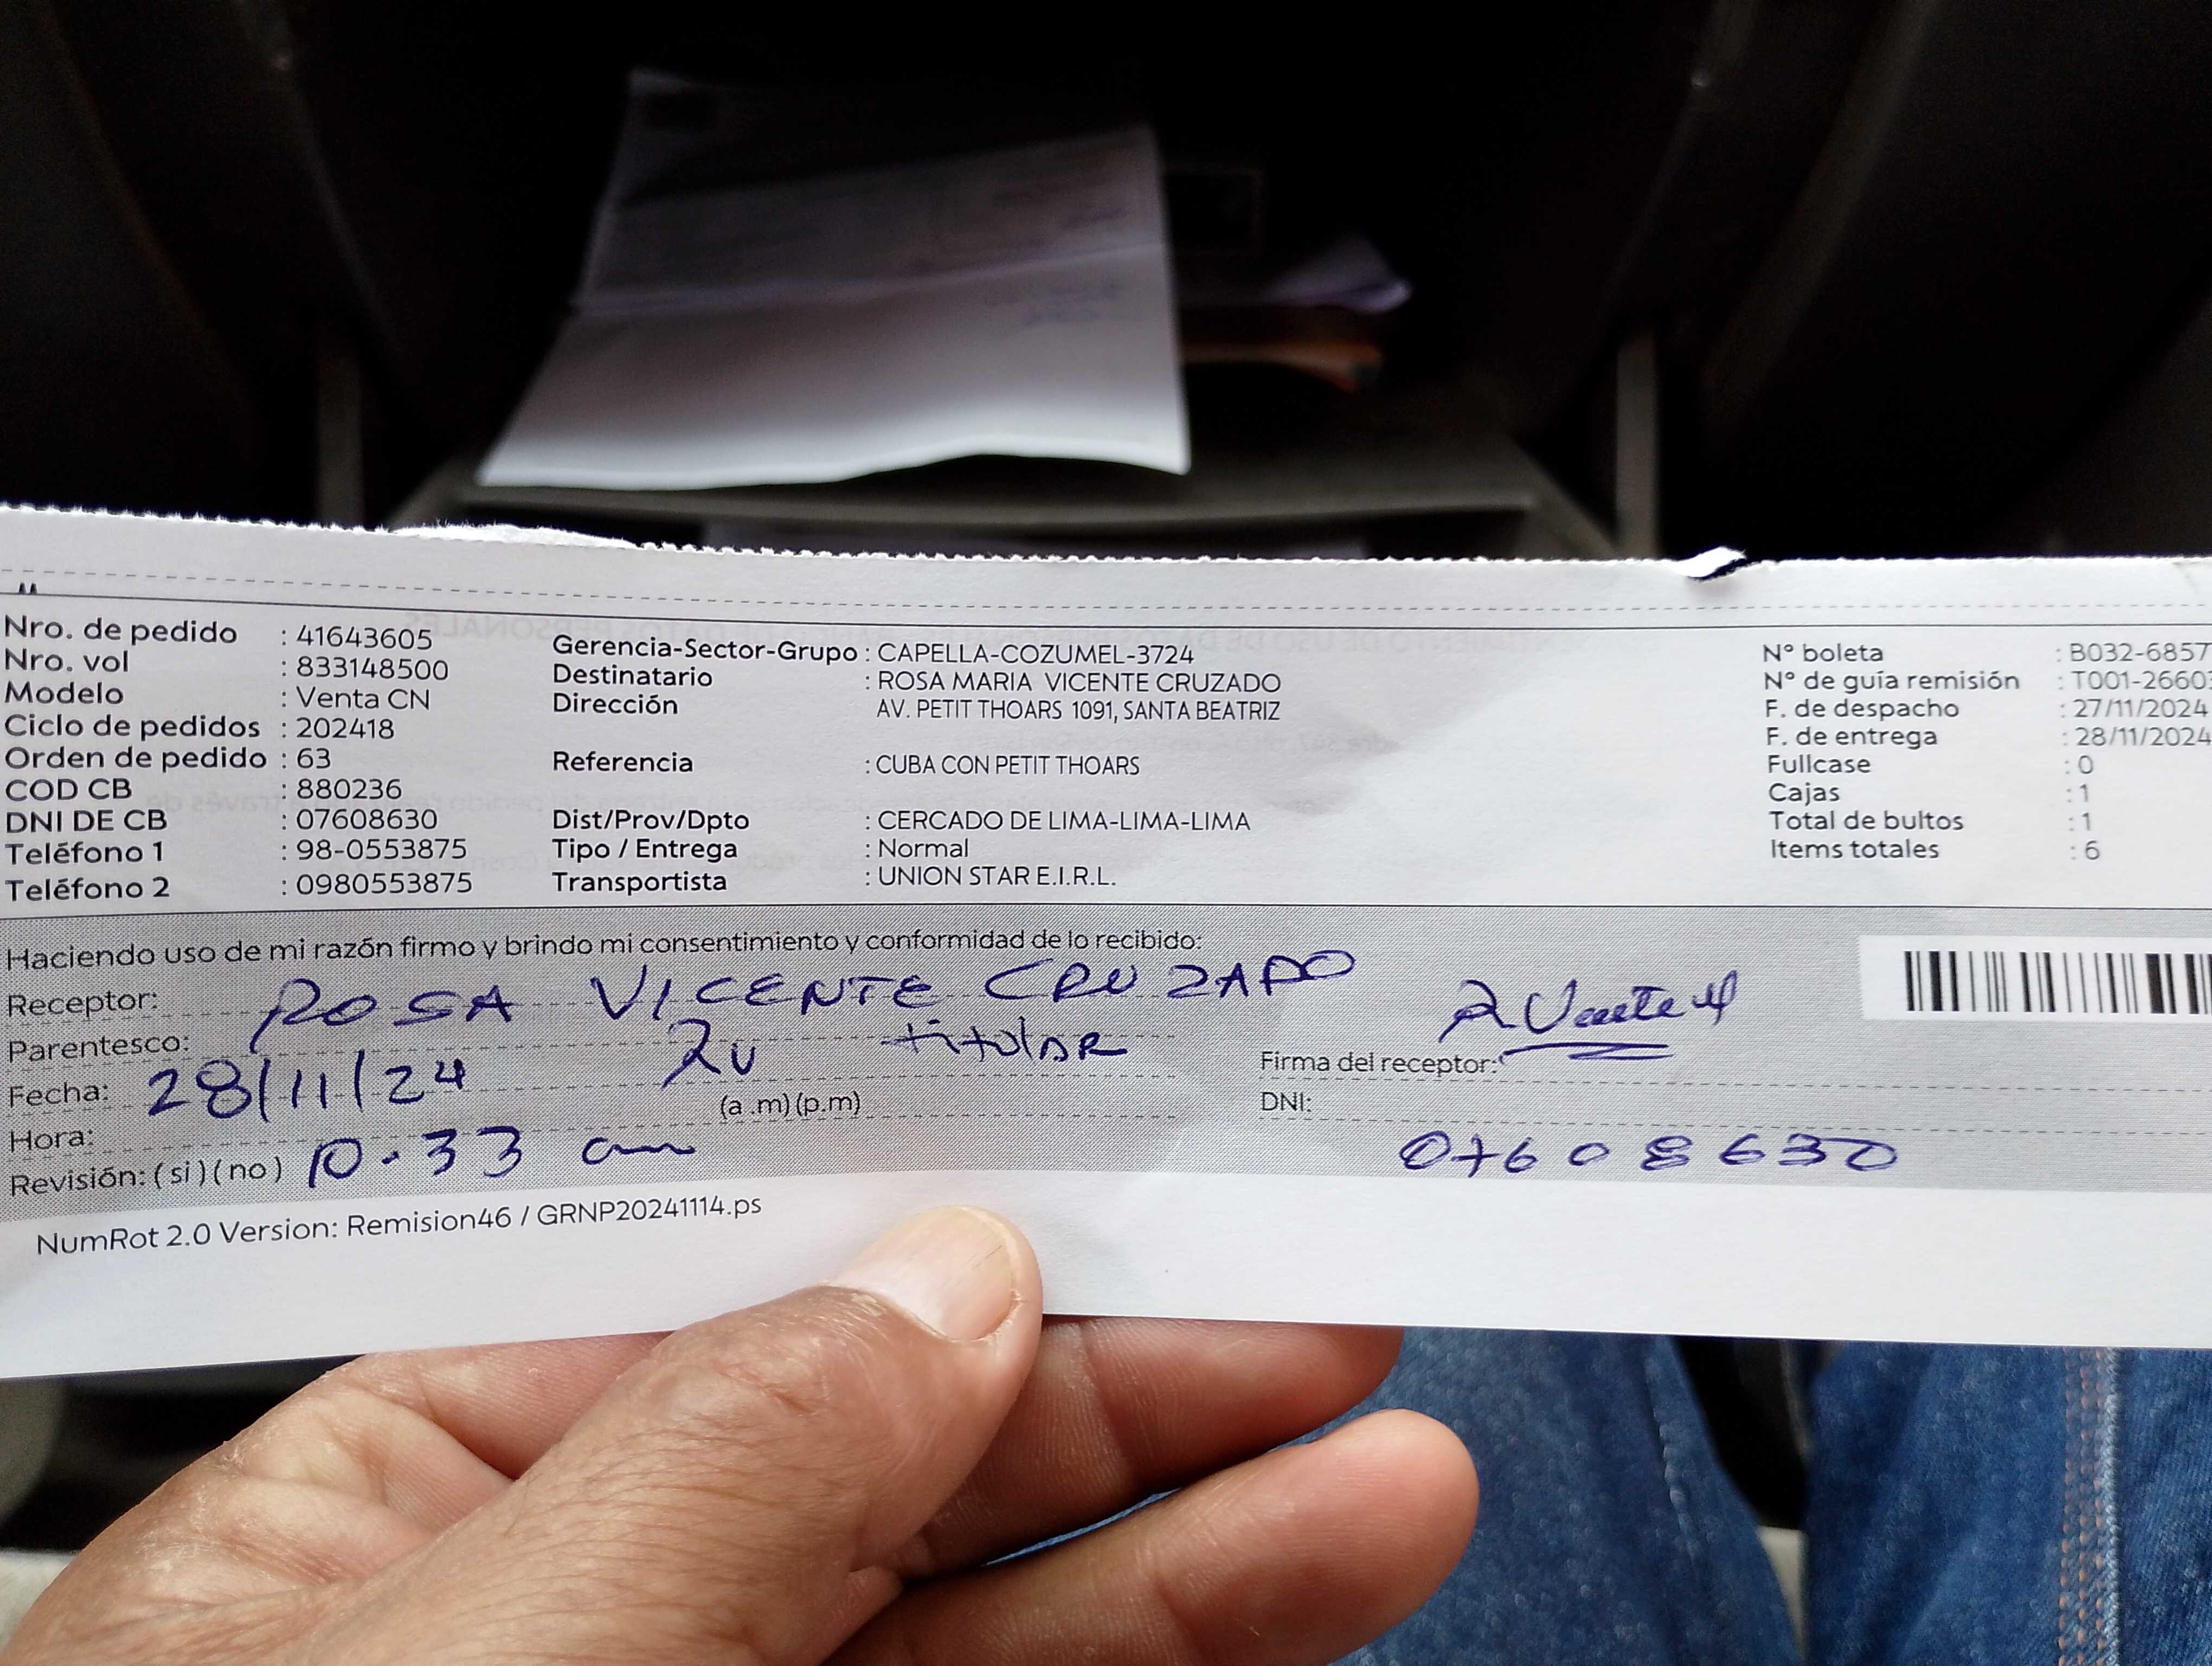 Nro. de pedido : 41643605
Nro. vol : 833148500
Modelo : Venta CN
Ciclo de pedidos : 202418
Orden de pedido : 63
COD CB : 880236
DNI DE CB : 07608630
Teléfono 1 : 98-0553875
Teléfono 2 : 0980553875
Gerencia-Sector-Grupo : CAPELLA-COZUMEL-3724
Destinatario : ROSA MARIA VICENTE CRUZADO
Dirección AV. PETIT THOARS 1091, SANTA BEATRIZ
Referencia : CUBA CON PETIT THOARS
Dist/Prov/Dpto : CERCADO DE LIMA-LIMA-LIMA
Tipo / Entrega : Normal
Transportista : UNION STAR E.I.R.L.
N° boleta : B032-6857
N° de guía remisión : T001-26603
F. de despacho : 27/11/2024
F. de entrega : 28/11/2024
Fullcase : 0
Cajas : 1
Total de bultos : 1
Items totales : 6
Haciendo uso de mi razón firmo y brindo mi consentimiento y conformidad de lo recibido:
Receptor: ROSA VICENTE CRUZADO
Parentesco: titular
Fecha: 28/11/24
(a .m) (p.m)
Hora: 10.33 am
Revisión: ( si ) ( no )
Firma del receptor:
DNI: 07608630
NumRot 2.0 Version: Remision46 / GRNP20241114.ps